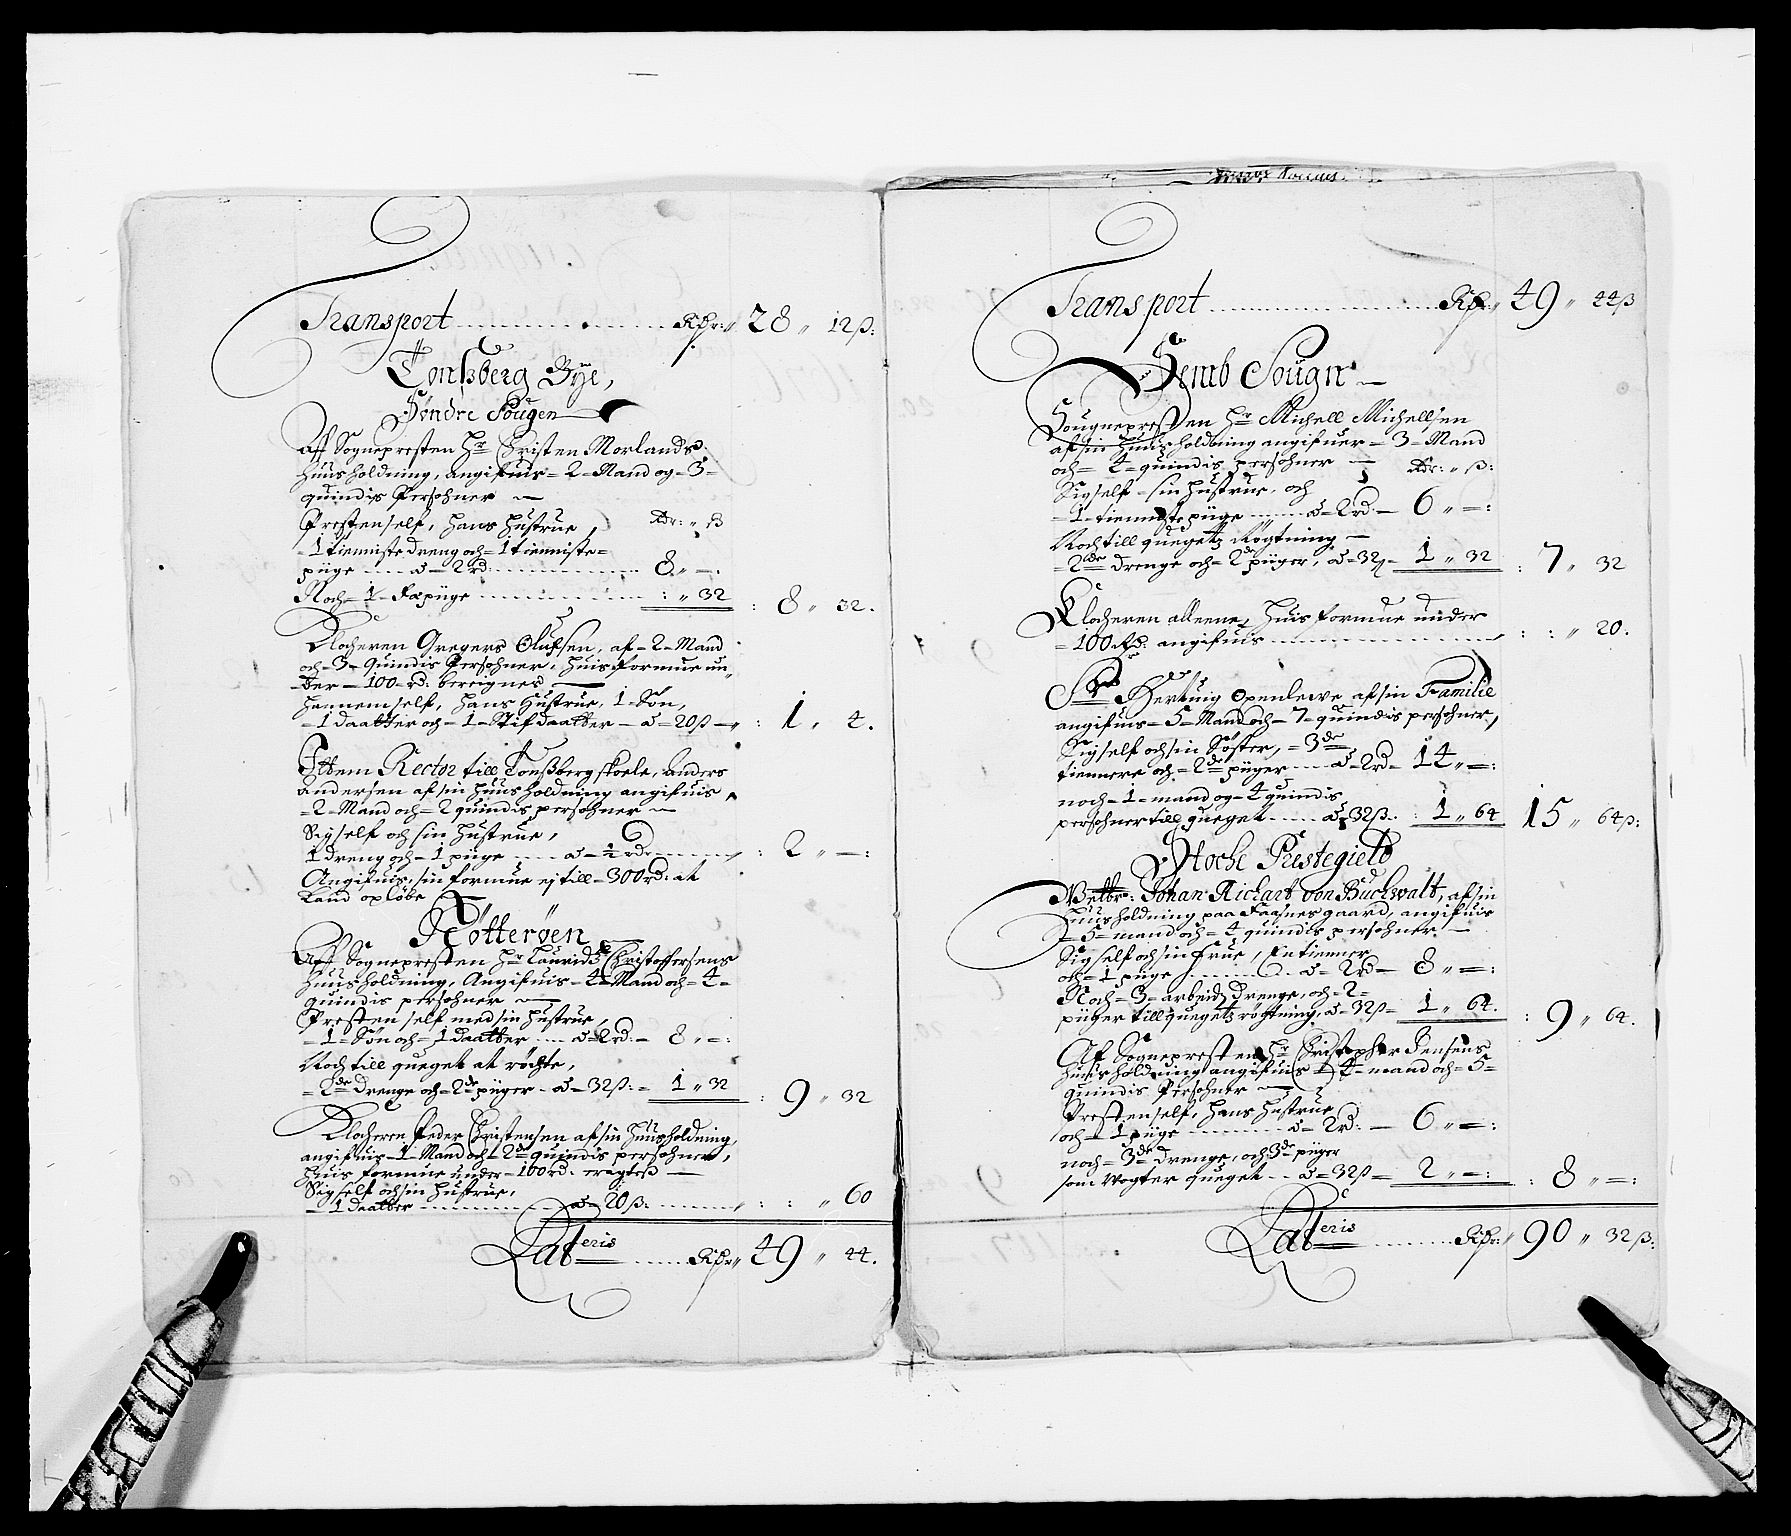 Transport ........ Rdr: 28 „ 12 ß:
Tonsberg Bye,
Søndre Sougen
Aff Sognepresten Hr Christen Morlands
Huusholdning, angifuis = 2 = Mand og = 3 =
quindis Persohner —
Presten self, hans hustrue, Rdr: „ ß
= 1 tienniste dreng och = 1 tienniste =
piige ..... a = 2 rd: ........ 8 „ — :
Noch = 1 = Fæpiige ........ : „ 32 : 8 „ 32.
Klocheren Gregers Olufsen, af = 2 = Mand
och = 3 = Quindis Persohner, huis formue un„
der = 100 = rd: bereignes —
hannem self, hans Hustrue, 1 = Søn,
= 1 daatter och = 1 = Stifdaatter — a = 20 ß — „ : 1 „ 4.
Ittem Rector till Tonsberg skoele, Anders
Andersen af sin huusholdning angifuis
= 2 = Mand och = 2 quindis persohner —
Sig self och sin hustrue,
1 dreng och = 1 piige ..... a = ½ rdr ...... : 2 „ — :
Angifuis, sin formue ej till = 300 rd: at
kand opløbe
Nøtterøen
Aff Sognepresten Hr Lauridz Christoffersens
Huusholdning, Angifuis = 4 = Mand och = 4 =
quindis persohner —
Presten self med sin hustrue,
= 1 = Søn och = 1 daatter ..... a = 2 rd: — 8 „ — :
Noch till queget at røchte,
= 2de drenge och = 2de piiger = a = 32 ß: = 1 „ 32 : 9 „ 32
Klocheren Peder Christensen af sin huusholdning,
angifuis = 1 = Mand och = 2de quindis persohner,
huis formue under = 100 rd: eragtes —
Sig self och sin hustrue,
= 1 daatter ........ a = 20 ß: ...... : : „ 60
Lateris ...... Rdr „ 49 „ 44.
Transport ........ Rdr: „ 49 „ 44 ß
Semb Sougn —
Sougnepresten Hr Michell Michellsen
af sin huusholdning angifuer = 3 = Mand
och = 4 = quindis persohner — Rdr: „ ß:
Sig self = sin hustrue, och
= 1 = tienniste piige ...... a = 2 rd — 6 „ — :
Noch till quegetz Røgtning —
= 2de drenge och = 2de piiger, a = 32 ß = 1 „ 32 : 7 „ 32
Klocheren alleene, huis formue under
= 100 rd: angifuis ........ : : „ 20.
Sr Hertuig Openlewe af sin Familie
angifuis = 5 = Mand och = 7 = quindis persohner,
Sig self och sin Søster, = 3de
tiennere och = 2de piiger ..... a = 2 rd = 14 „ — :
noch = 1 = mand og = 4 quindis
persohner till queget ..... a 32 ß. : 1 „ 64 15 „ 64 ß:
Stoche Prestegield
Welbr: Johan Richart von Buchwalt, af sin
Huusholdning paa Faasnes gaard, angifuis
= 5 = mand och = 4 quindis persohner —
Sig self och sin Frue, En tienner
och = 1 piige ........ a = 2 rd — 8 „ — :
Noch = 3 = arbeidz drenge, och = 2 =
piiger till quegetz røgtning, a = 32 ß = 1 „ 64. : 9 „ 64.
Af Sognepresten Hr Christopher Jensens
huusholdning angifuis = 4 = mand och = 5 =
quindis Persohner —
Presten self, hans hustrue
och = 1 piige ........ a = 2 rd: — 6 „ — :
noch = 3de drenge, och 3de piiger
som vogter queget .. a = 32 ß = 2 „ — : : 8 „ — :
Lateris ........ Rdr: „ 90 „ 32 ß: